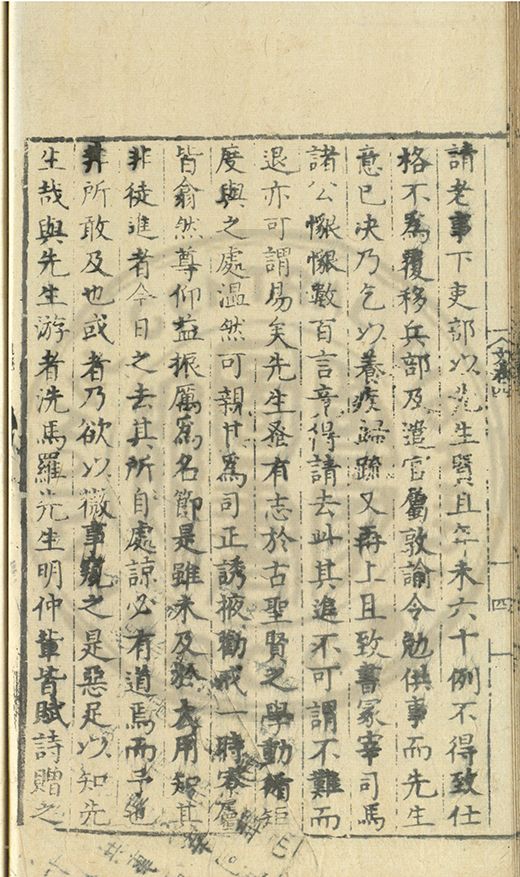 請老事下吏部以先生賢且年未六十例不得致仕
格不為覆移兵部及遣官屬敦諭令勉供事而先生
意已决乃乞以養疾歸䟽又再上且致書冡宰司馬
諸公懇懇數百言竟得請去此其進不可謂不難而
退亦可謂易矣先生蚤有志於古聖賢之學動循矩
度與之處温然可親其為司正誘掖勸戒一時寮屬
皆翕然尊仰益振厲為名節是雖未及於大用知其
非徒進者今日之去其所自處諒必有道焉而予
非所敢及也或者乃欲以微事窺之是惡足以知先
生哉與先生游者洗馬羅先生明仲輩皆賦詩贈之
四